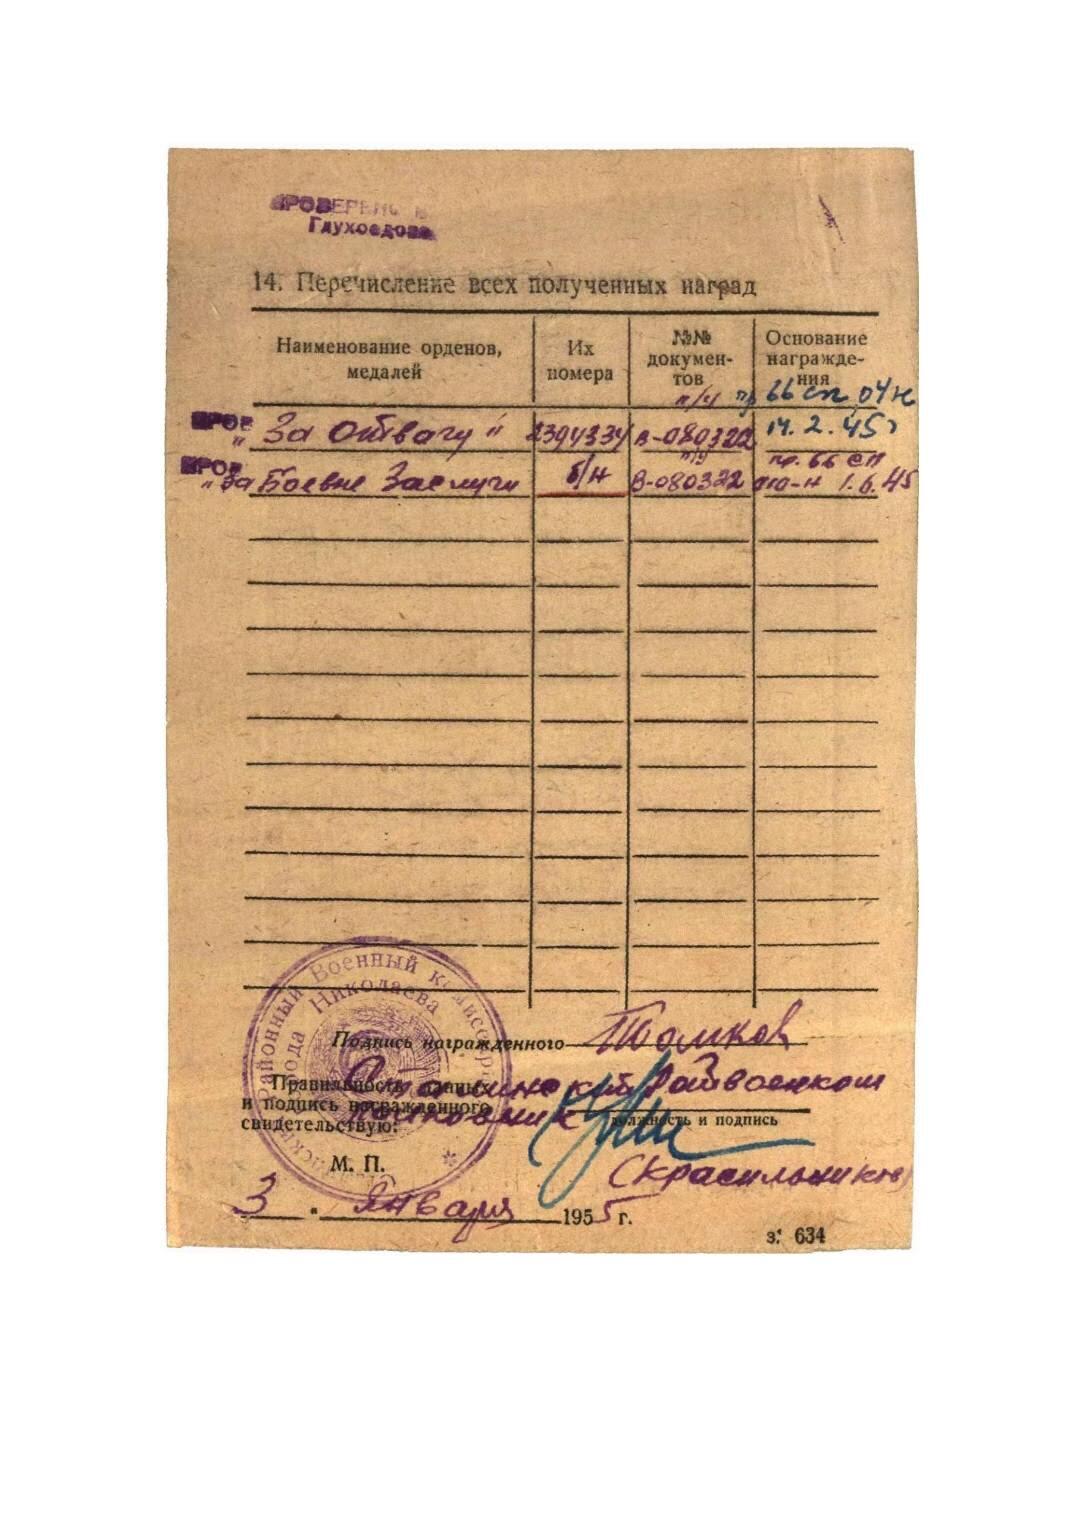 ПРОВЕРЕНО
Глухоедова
14. Перечисление всех полученных наград
Наименование орденов, медалей
Их номера
№№ докумен-
тов
Основание
награжде-
ния
п/у пр 66 сп 04н
ПРОВ „За Отвагу" 2394334 В-080322 14.2.45г
п/у пр. 66 сп
ПРОВ „За Боевые Заслуги б/н В-080322 010-н 1.6.45
Районный Военный комиссар
города Николаева
Подпись награжденного
Правильность данных Сталинский Райвоенком
и подпись награжденного полковник
свидетельствую:
должность и подпись
М. П.
(Красильников)
3 " Января 1955 г.
з. 634